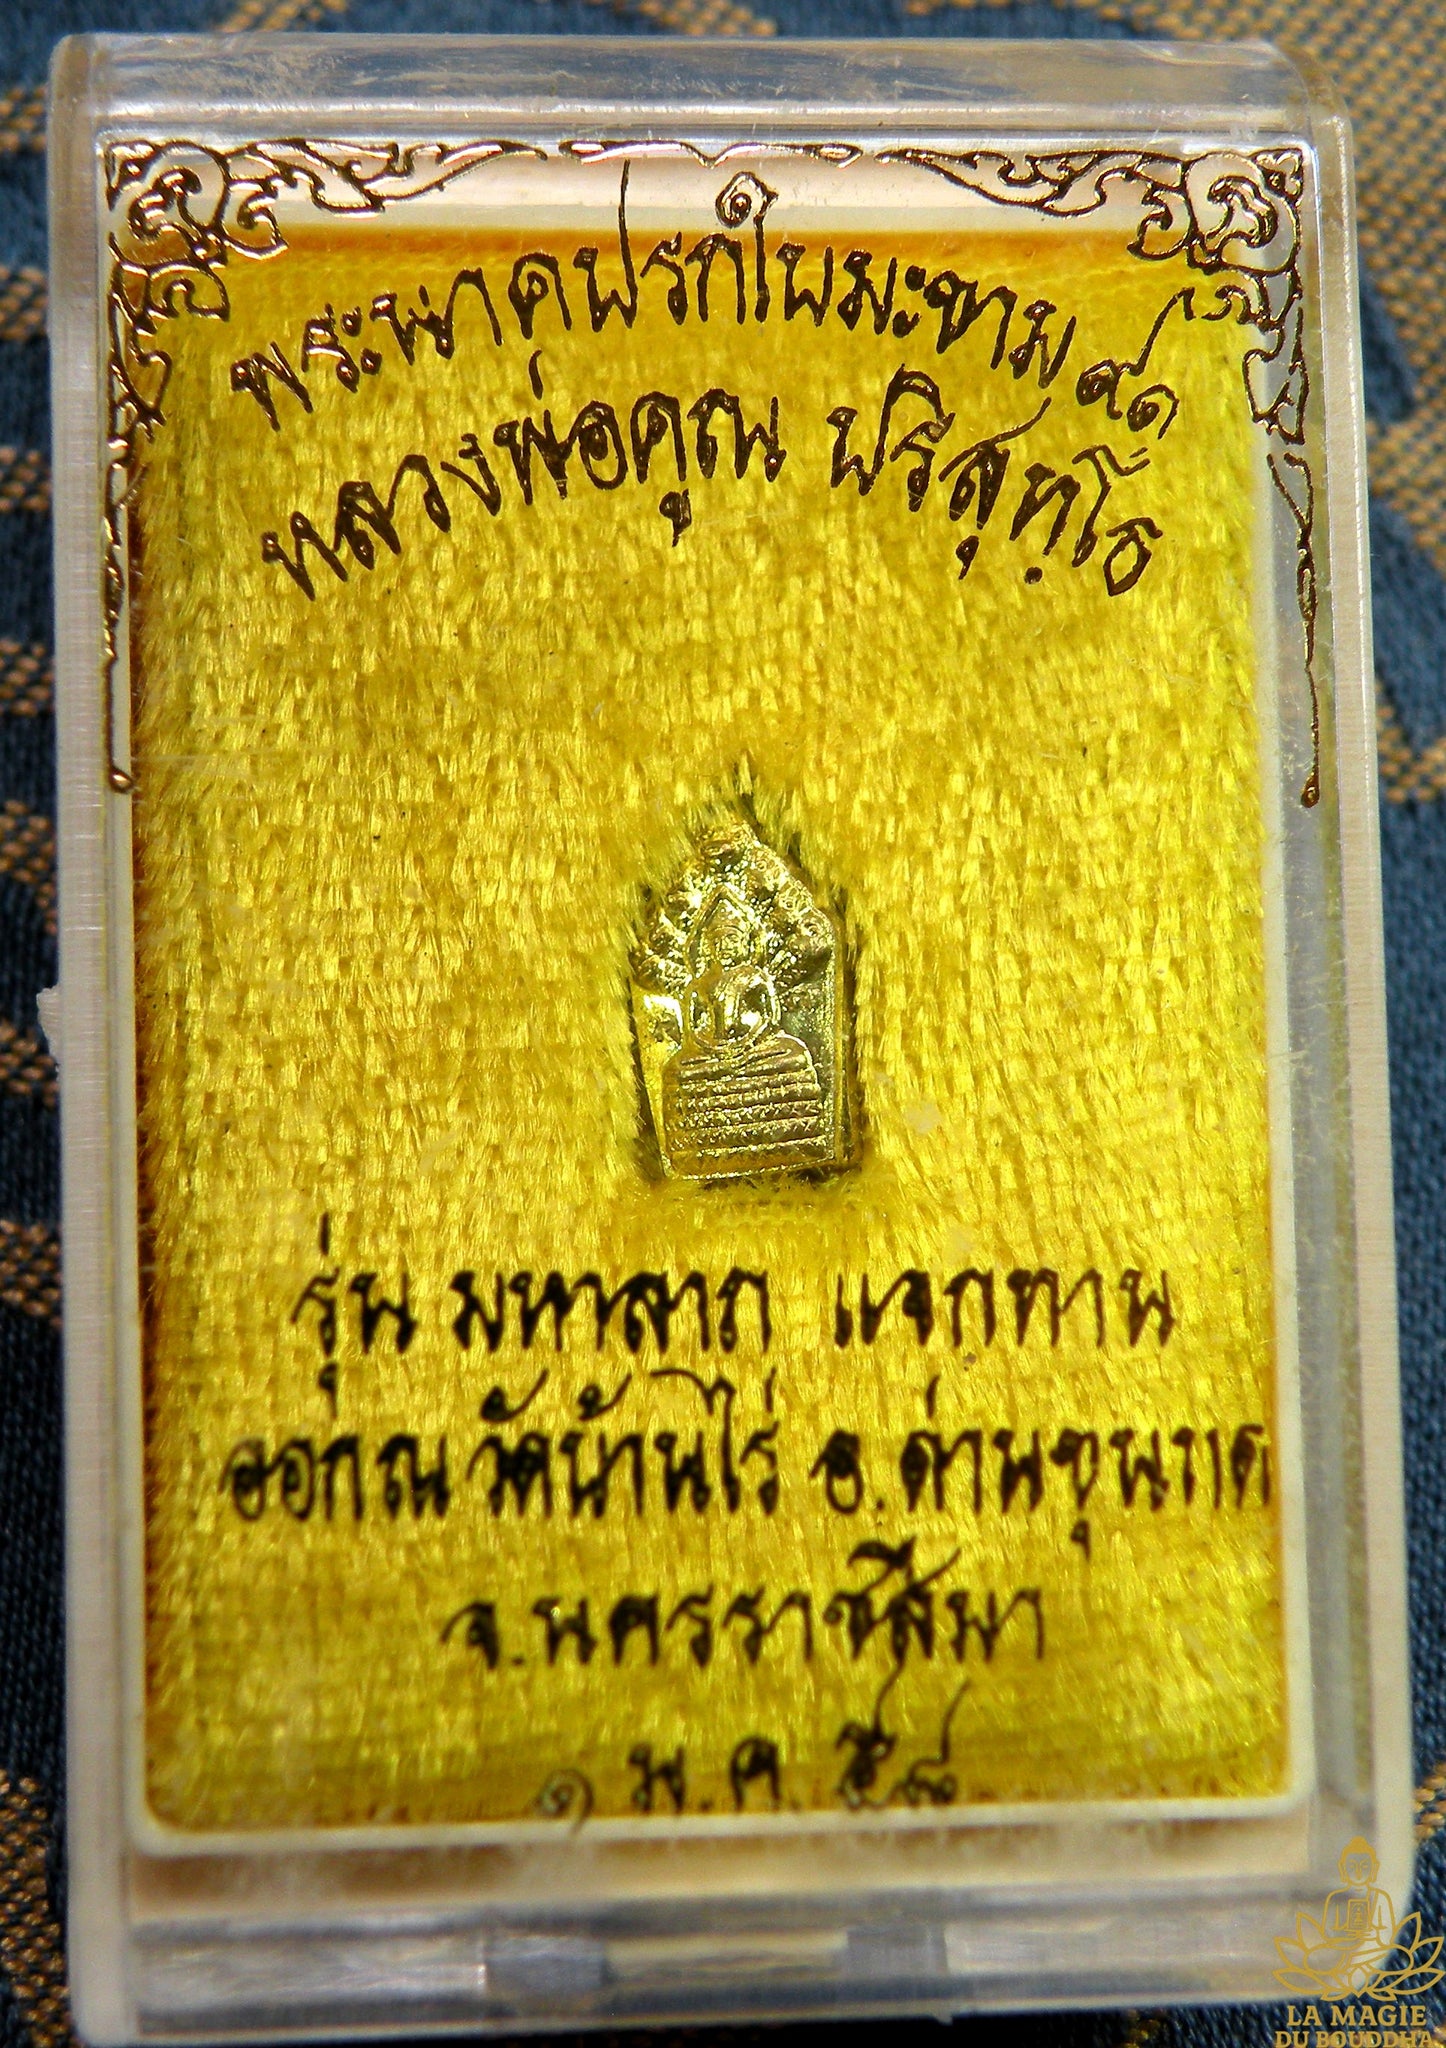 พระนาคปรกใบมะขาม ๙๑
หลวงพ่อคูณ ปริสุทฺโธ
รุ่น มหาลาภ แจกทาน
ออก ณ วัดบ้านไร่ อ.ด่านขุนทด
จ.นครราชสีมา
๑ ม.ค. ๕๘
LA MAGIE
DU BOUDDHA